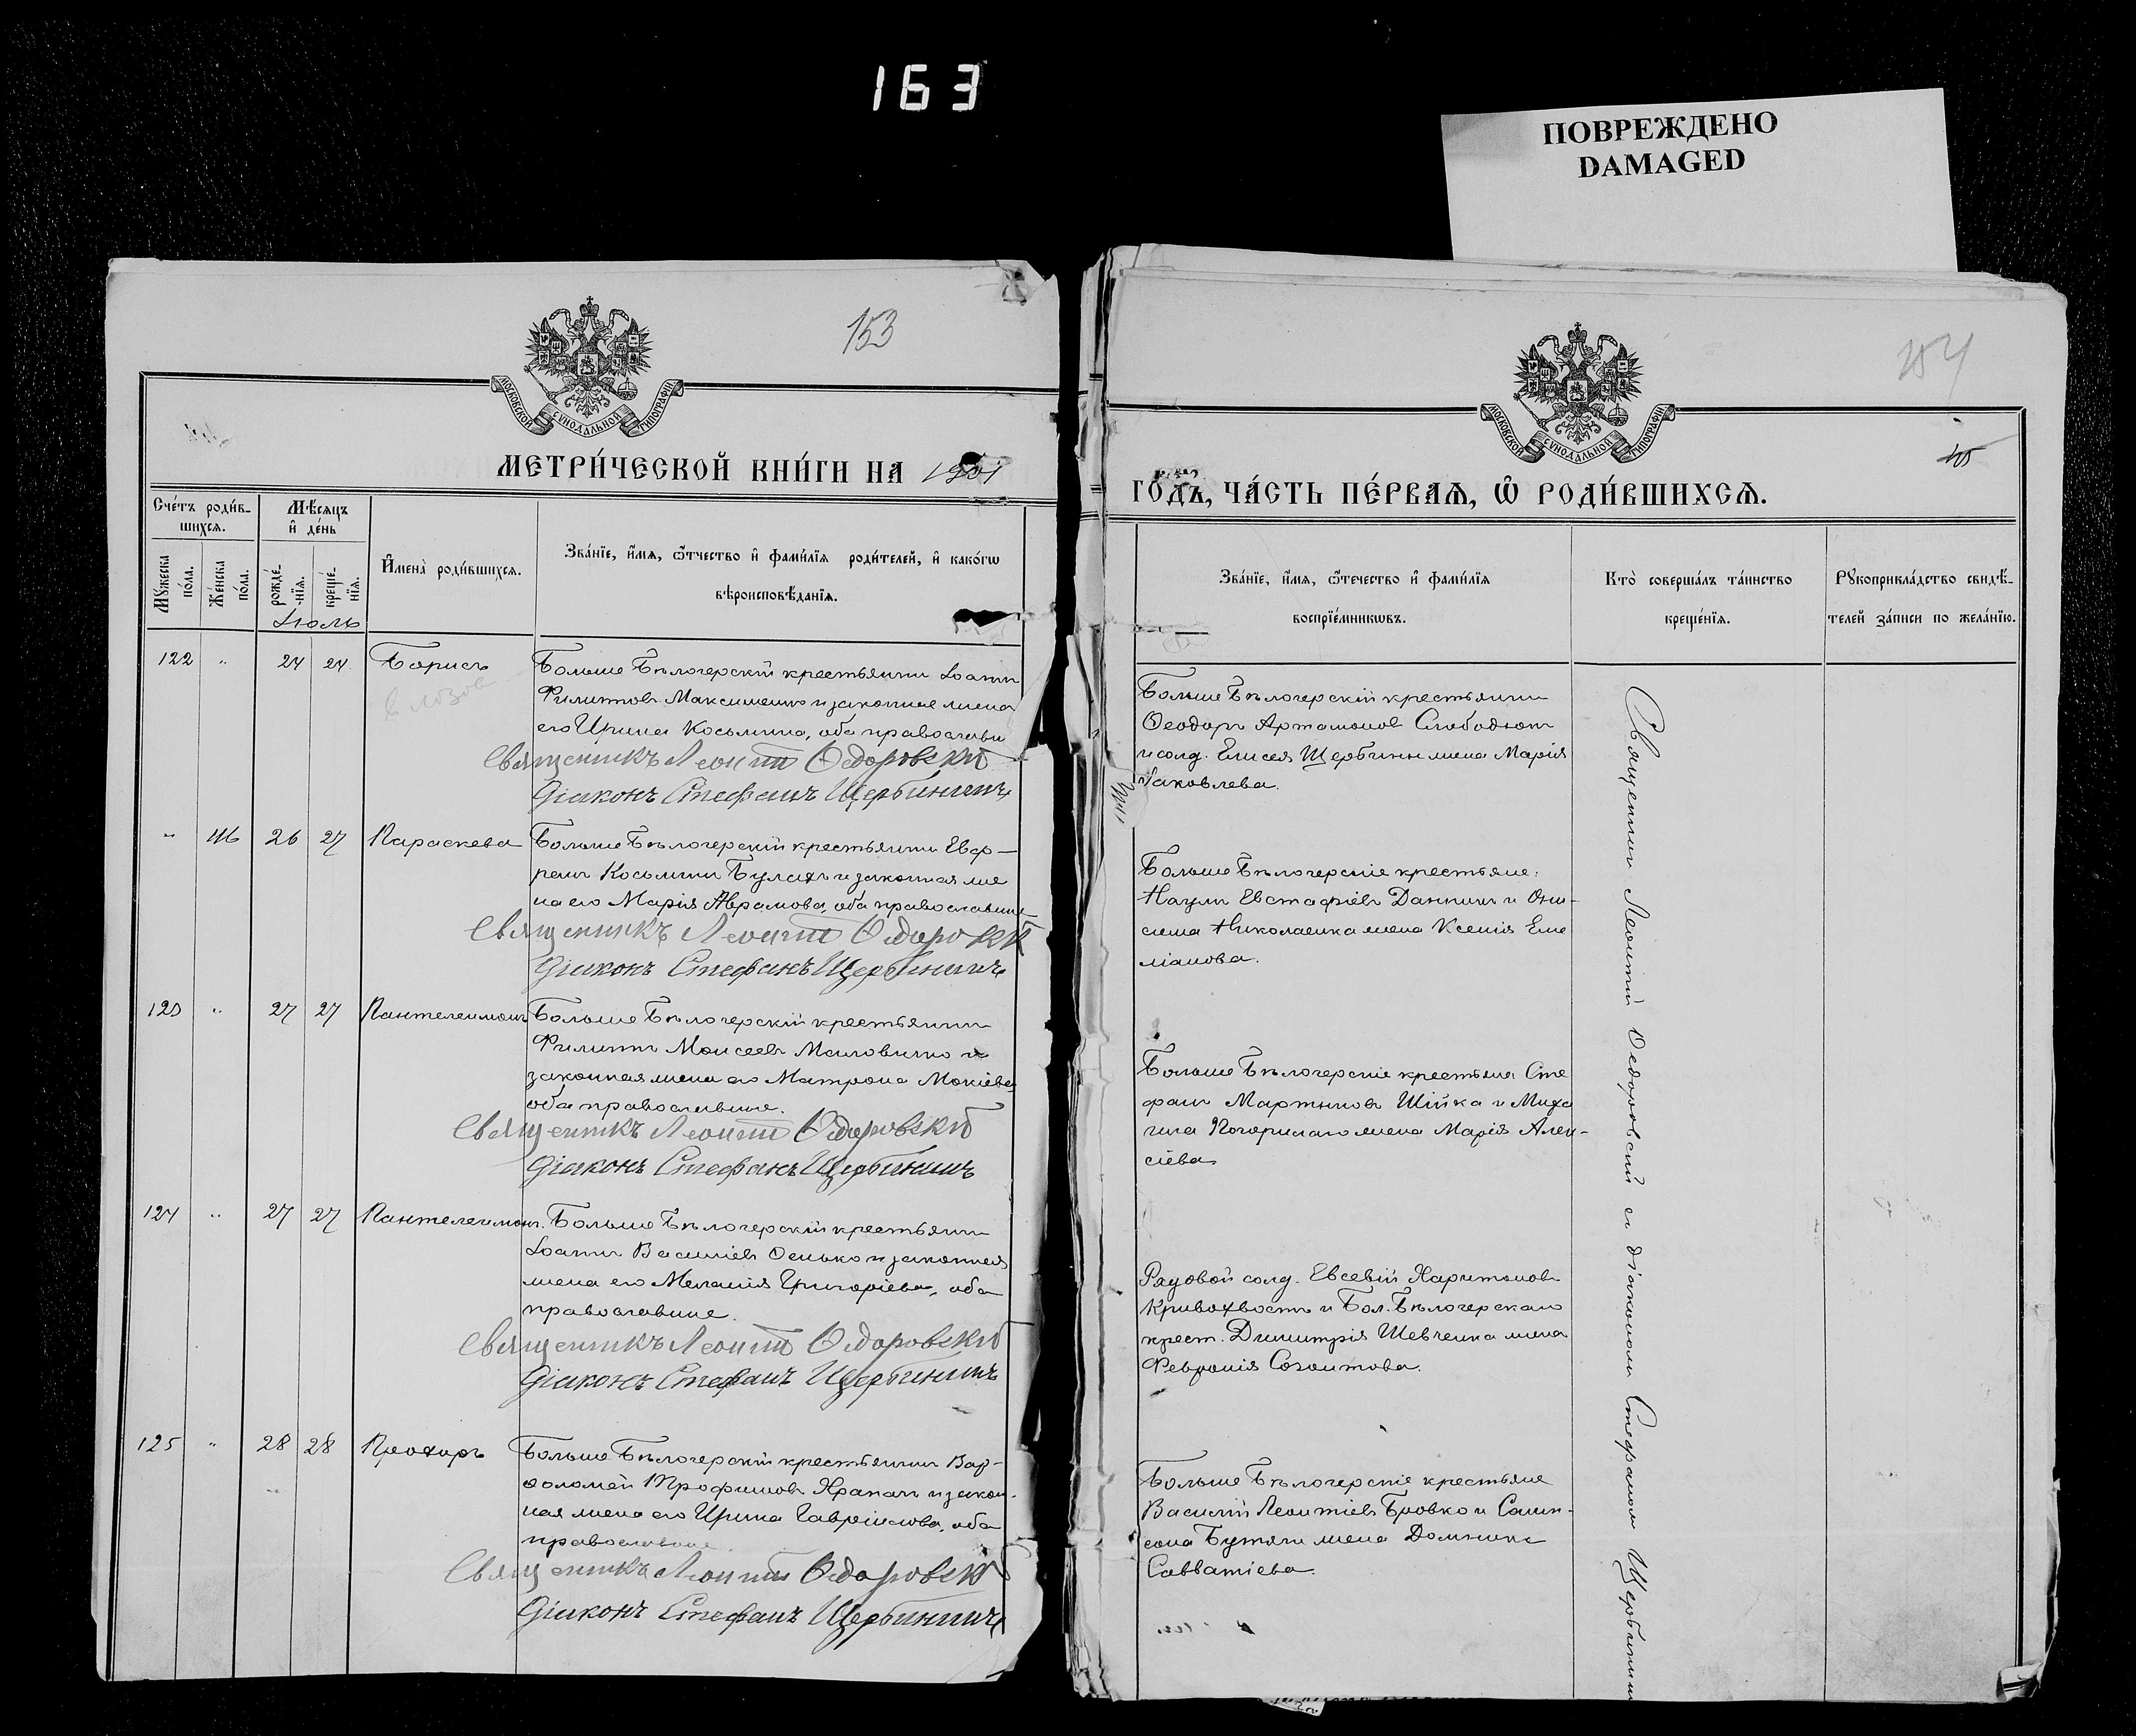 163
ПОВРЕЖДЕНО
DAMAGED
153
МОСКОВСКОЙ СѴНОДАЛЬНОЙ ТИПОГРАФІИ
МЕТРИ́ЧЕСКОЙ КНИ́ГИ НА 1901
Сче́тъ роди́в-
шихся.
Мѣ́сяцъ
и҆ де́нь
Мꙋ́жеска по́ла.
Же́нска по́ла.
рожде́-нїя.
креще́-нїя.
И҆мена̀ роди́вшихся.
Зва́нїе, и҆́мя, ѻ҆́тчество и҆ фами́лїя роди́телей, и҆ како́гѡ
вѣроисповѣ́данїя.
Іюль
122 " 24 24 Борисъ
Больше Бѣлозерскій крестьянинъ Іоаннъ
Филиповъ Максименко и законная жена
его Ирина Косьмина, оба православн
Священникъ Леонтій Ѳедоровскій
Діаконъ Стефанъ Щербининъ
" 116 26 27 Параскева
Больше Бѣлозерскій крестьянинъ Евф-
ремъ Косьминъ Булахъ и законная же
на его Марія Аврамова, оба православные
Священникъ Леонтій Ѳедоровскій
Діаконъ Стефанъ Щербининъ
123 " 27 27 Пантелеимонъ
Больше Бѣлозерскій крестьянинъ
Филиппъ Моисеевъ Миловичко и
законная жена его Матрона Мокіева
оба православные.
Священникъ Леонтій Ѳедоровскій
Діаконъ Стефанъ Щербининъ
124 " 27 27 Пантелеимонъ.
Больше Бѣлозерскій крестьянинъ
Іоаннъ Василіевъ Сенько и законная
жена его Меланія Григоріева, оба
православные.
Священникъ Леонтій Ѳедоровскій
Діаконъ Стефанъ Щербининъ
125 " 28 28 Прохоръ
Больше Бѣлозерскій крестьянинъ Вар-
ѳоломей Трофимовъ Храпачъ и закон-
ная жена его Ирина Гавріилова, оба
православные
Священникъ Леонтій Ѳедоровскій
Діаконъ Стефанъ Щербининъ
154
МОСКОВСКОЙ СѴНОДАЛЬНОЙ ТИПОГРАФІИ
ГО́ДЪ, ЧА́СТЬ ПЕ́РВАЯ, Ѡ҆ РОДИ́ВШИХСЯ.
Зва́нїе, и҆́мя, ѻ҆те́чество и҆ фами́лїя
воспрїе́мникѡвъ.
Кто̀ соверша́лъ та́инство
креще́нїя.
Рꙋкоприкла́дство свидѣ́-
телей за́писи по жела́нїю.
Больше Бѣлозерскій крестьянинъ
Ѳеодоръ Артамоновъ Слободюкъ
и солд. Елисея Щербины жена Марія
Іаковлева.
Больше Бѣлозерскіе крестьяне:
Наумъ Евстафіевъ Данкинъ и Они-
сима Николаенка жена Ксенія Еме
ліанова.
Больше Бѣлозерскіе крестьяне Сте
фанъ Мартыновъ Шійка и Миха
ила Погорилаго жена Марія Алек-
сіева
Рядовой солд. Евсевій Харитоновъ
Кривохвостъ и Бол. Бѣлозерскаго
крест. Димитрія Шевченка жена
Февронія Созонтова.
Больше Бѣлозерскіе крестьяне
Василій Леонтіевъ Бровко и Самп-
сона Бутяги жена Домникія
Савватіева.
Священникъ Леонтій Ѳедоровскій съ діакономъ Стефаномъ Щербининымъ